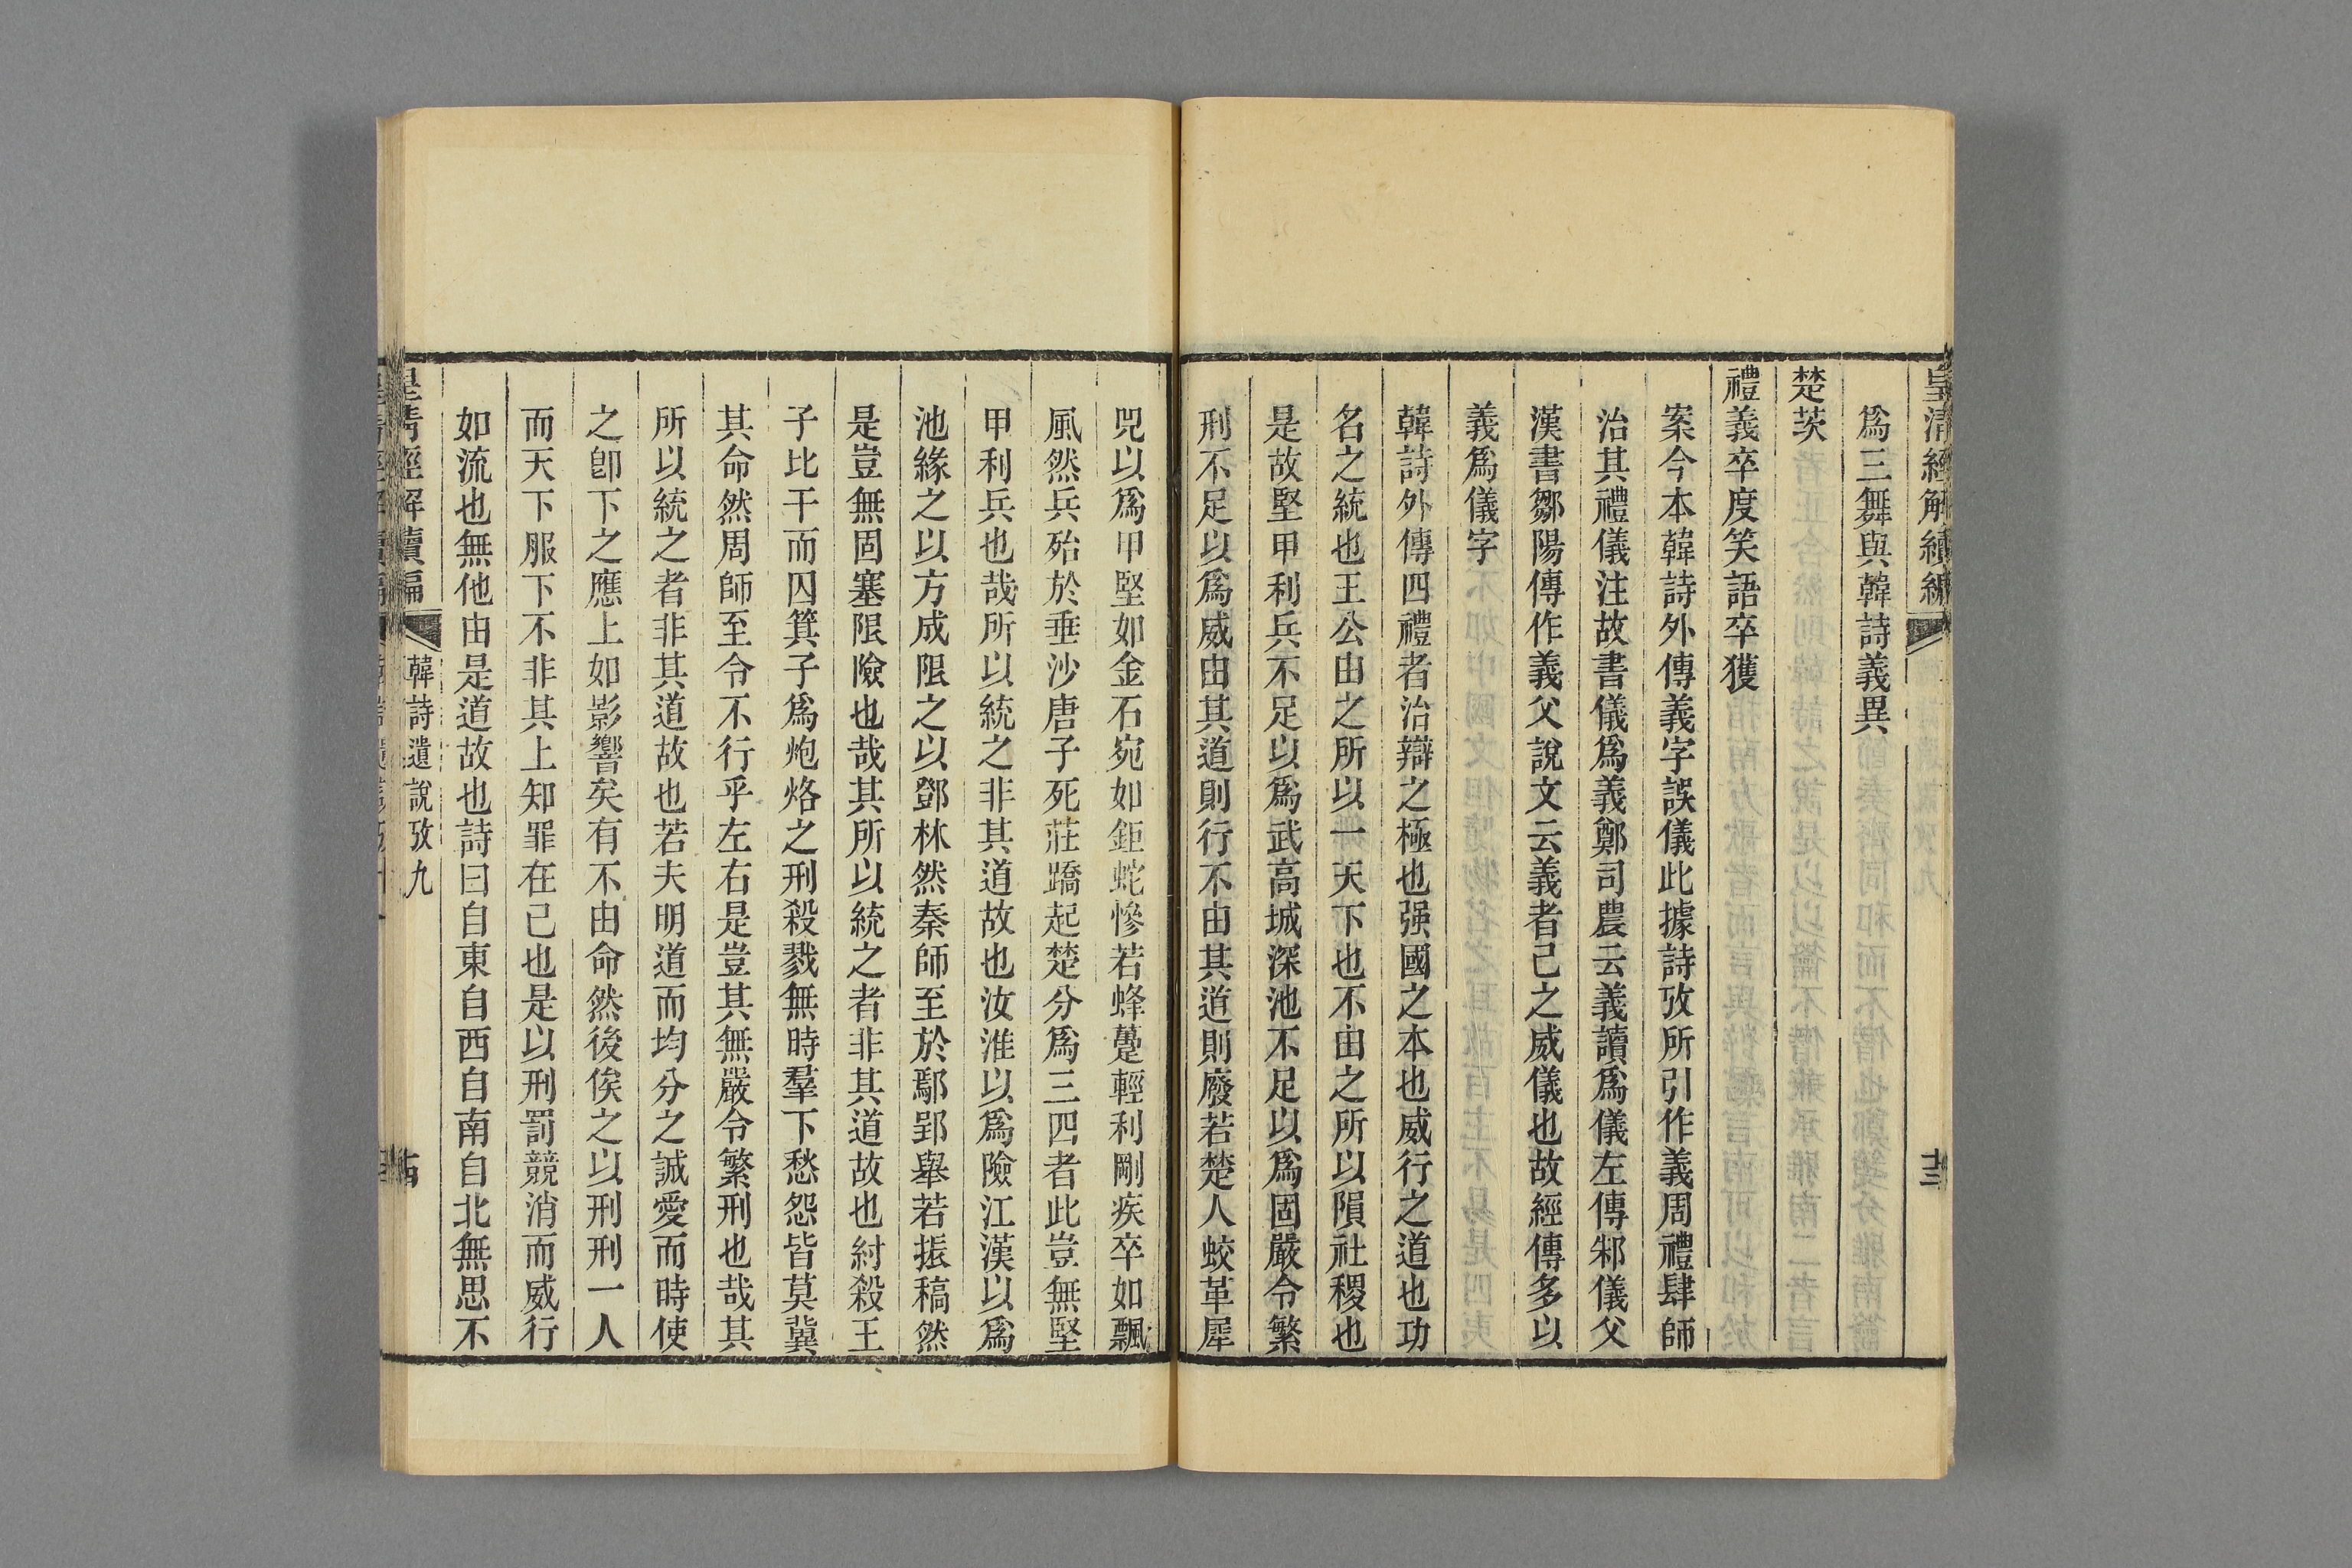 皇清經解續編
十三
爲三舞與韓詩義異
楚茨
禮義卒度笑語卒獲
案今本韓詩外傳義字誤儀此據詩攷所引作義周禮肆師
治其禮儀注故書儀爲義鄭司農云義讀爲儀左傳邾儀父
漢書鄒陽傳作義父說文云義者己之威儀也故經傳多以
義爲儀字
韓詩外傳四禮者治辯之極也强國之本也威行之道也功
名之統也王公由之所以一天下也不由之所以隕社稷也
是故堅甲利兵不足以爲武高城深池不足以爲固嚴令繁
刑不足以爲威由其道則行不由其道則廢若楚人蛟革犀
兕以爲甲堅如金石宛如鉅蛇慘若蜂蠆輕利剛疾卒如飄
風然兵殆於垂沙唐子死莊蹻起楚分爲三四者此豈無堅
甲利兵也哉所以統之非其道故也汝淮以爲險江漢以爲
池緣之以方成限之以鄧林然秦師至於鄢郢舉若振稿然
是豈無固塞限險也哉其所以統之者非其道故也紂殺王
子比干而囚箕子爲炮烙之刑殺戮無時羣下愁怨皆莫冀
其命然周師至令不行乎左右是豈其無嚴令繁刑也哉其
所以統之者非其道故也若夫明道而均分之誠愛而時使
之卽下之應上如影響矣有不由命然後俟之以刑刑一人
而天下服下不非其上知罪在己也是以刑罰競消而威行
如流也無他由是道故也詩曰自東自西自南自北無思不
皇清經解續編
韓詩遺說攷九
十四